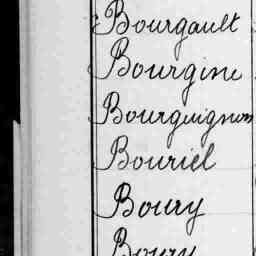 Bourgault
Bourgine
Bourguignon
Bouriel
Boury
Boury